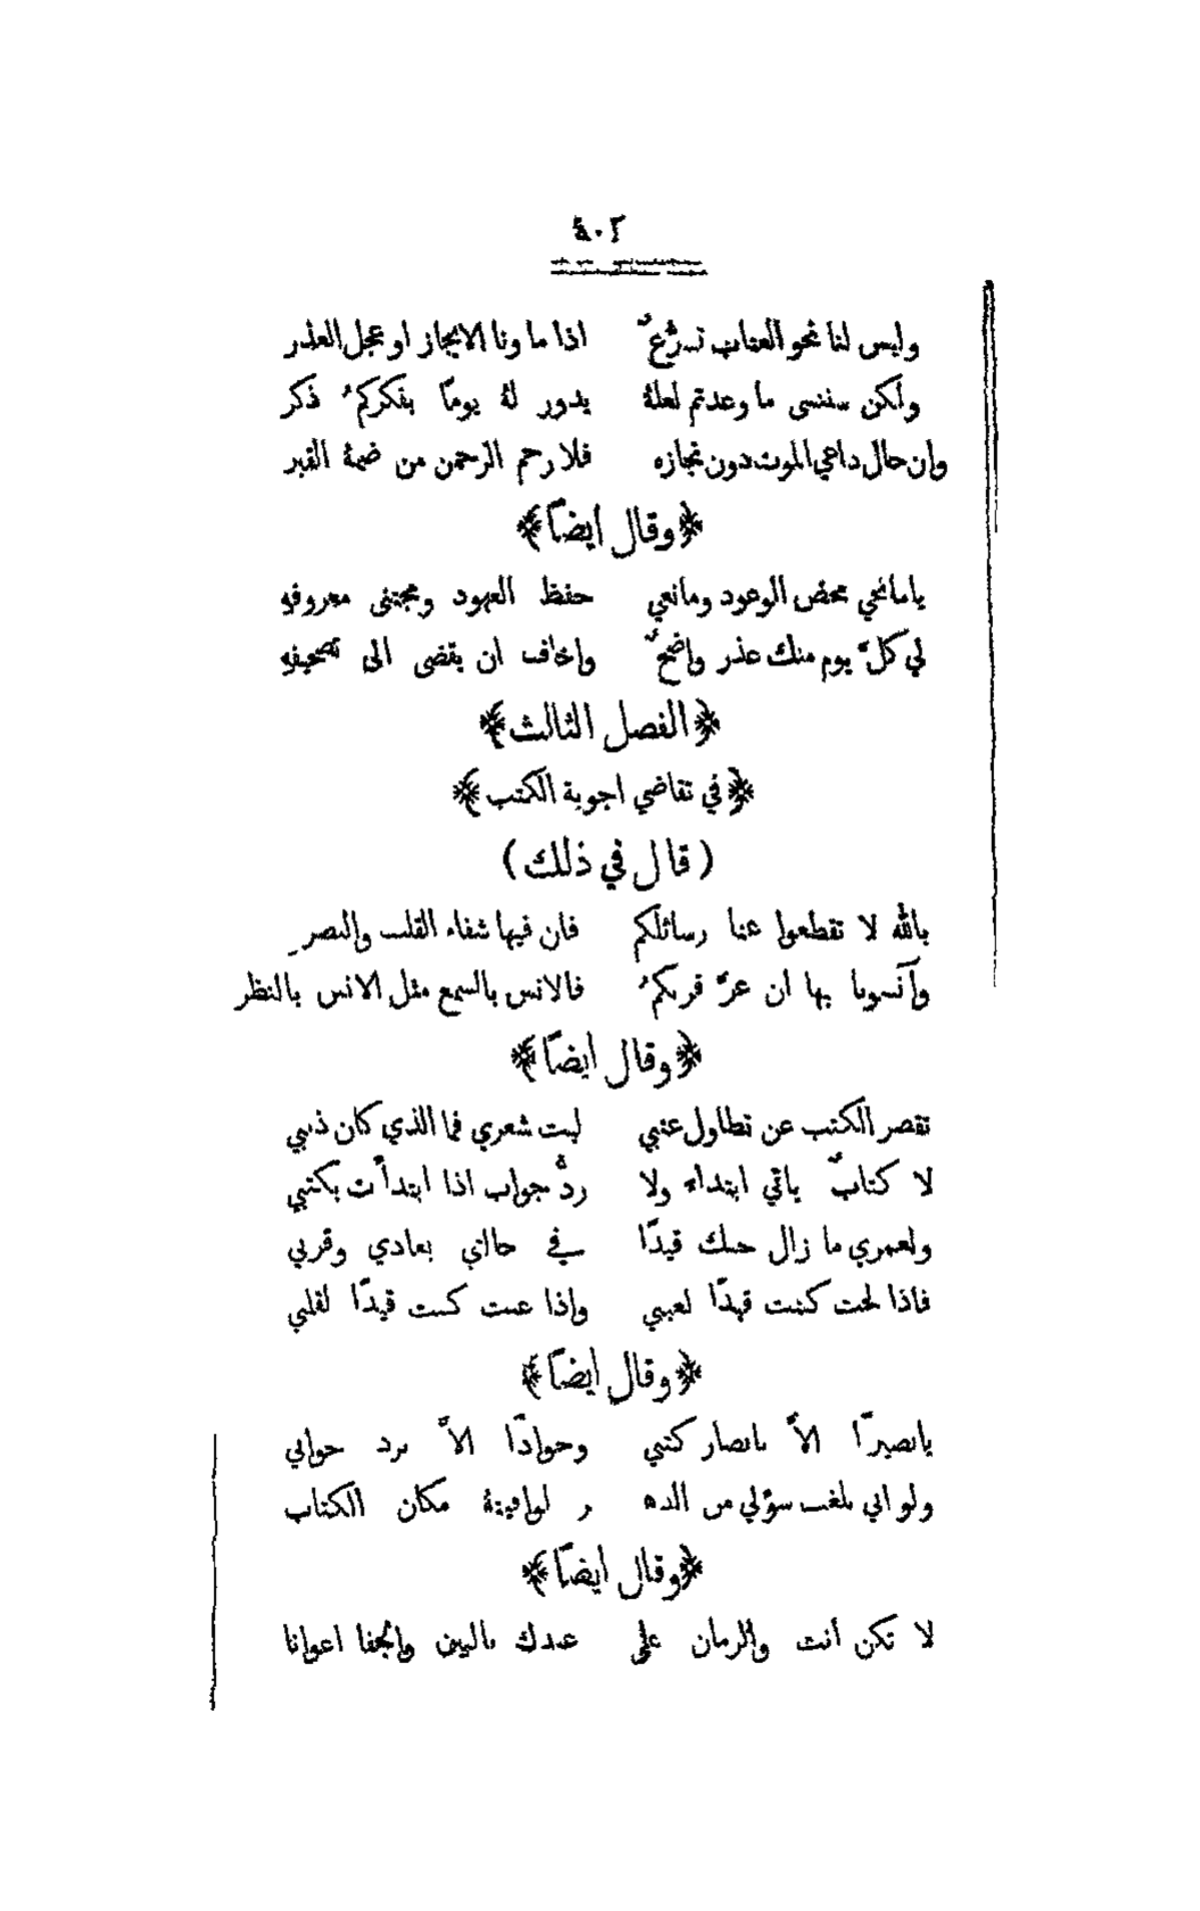 ٤٠٢
وليس لنا نحو العتاب تسرّعٌ اذا ما ونا الايجاز او عجل العذر
ولكن سننسى ما وعدتم لعلهُ يدور لهُ يومًا بفكركمُ ذكر
وان حال داعي الموت دون نجازه فلا رحم الرحمن من ضمهُ القبر
﴿وقال ايضًا﴾
يامانحي محض الوعود ومانعي حفظ العهود ومجتنى معروفهِ
لي كلَّ يوم منك عذر واضحٌ واخاف ان يقضى الى تصحيفهِ
﴿الفصل الثالث﴾
﴿في تقاضي اجوبة الكتب﴾
(قال في ذلك)
بالله لا تقطعوا عنا رسائلكم فان فيها شفاء القلب والبصر
وآنسونا بها ان عزَّ قربكمُ فالانس بالسمع مثل الانس بالنظر
﴿وقال ايضًا﴾
تقصر الكتب عن تطاول عتبي ليت شعري فما الذي كان ذنبي
لا كتابٌ ياتي ابتداء ولا ردُّ جواب اذا ابتدأت بكتبي
ولعمري ما زال حبك قيدًا في حالتي بعادي وقربي
فاذا لحت كنت قيدًا لعيني واذا غبت كنت قيدًا لقلبي
﴿وقال ايضًا﴾
يابصيرًا الاَّ بابصار كتبي وجوادًا الاَّ برد جوابي
ولو اني بلغت سؤلي من الده ر لوافيتهُ مكان الكتاب
﴿وقال ايضًا﴾
لا تكن أنت والزمان على عبدك بالبين والجفا اعوانا